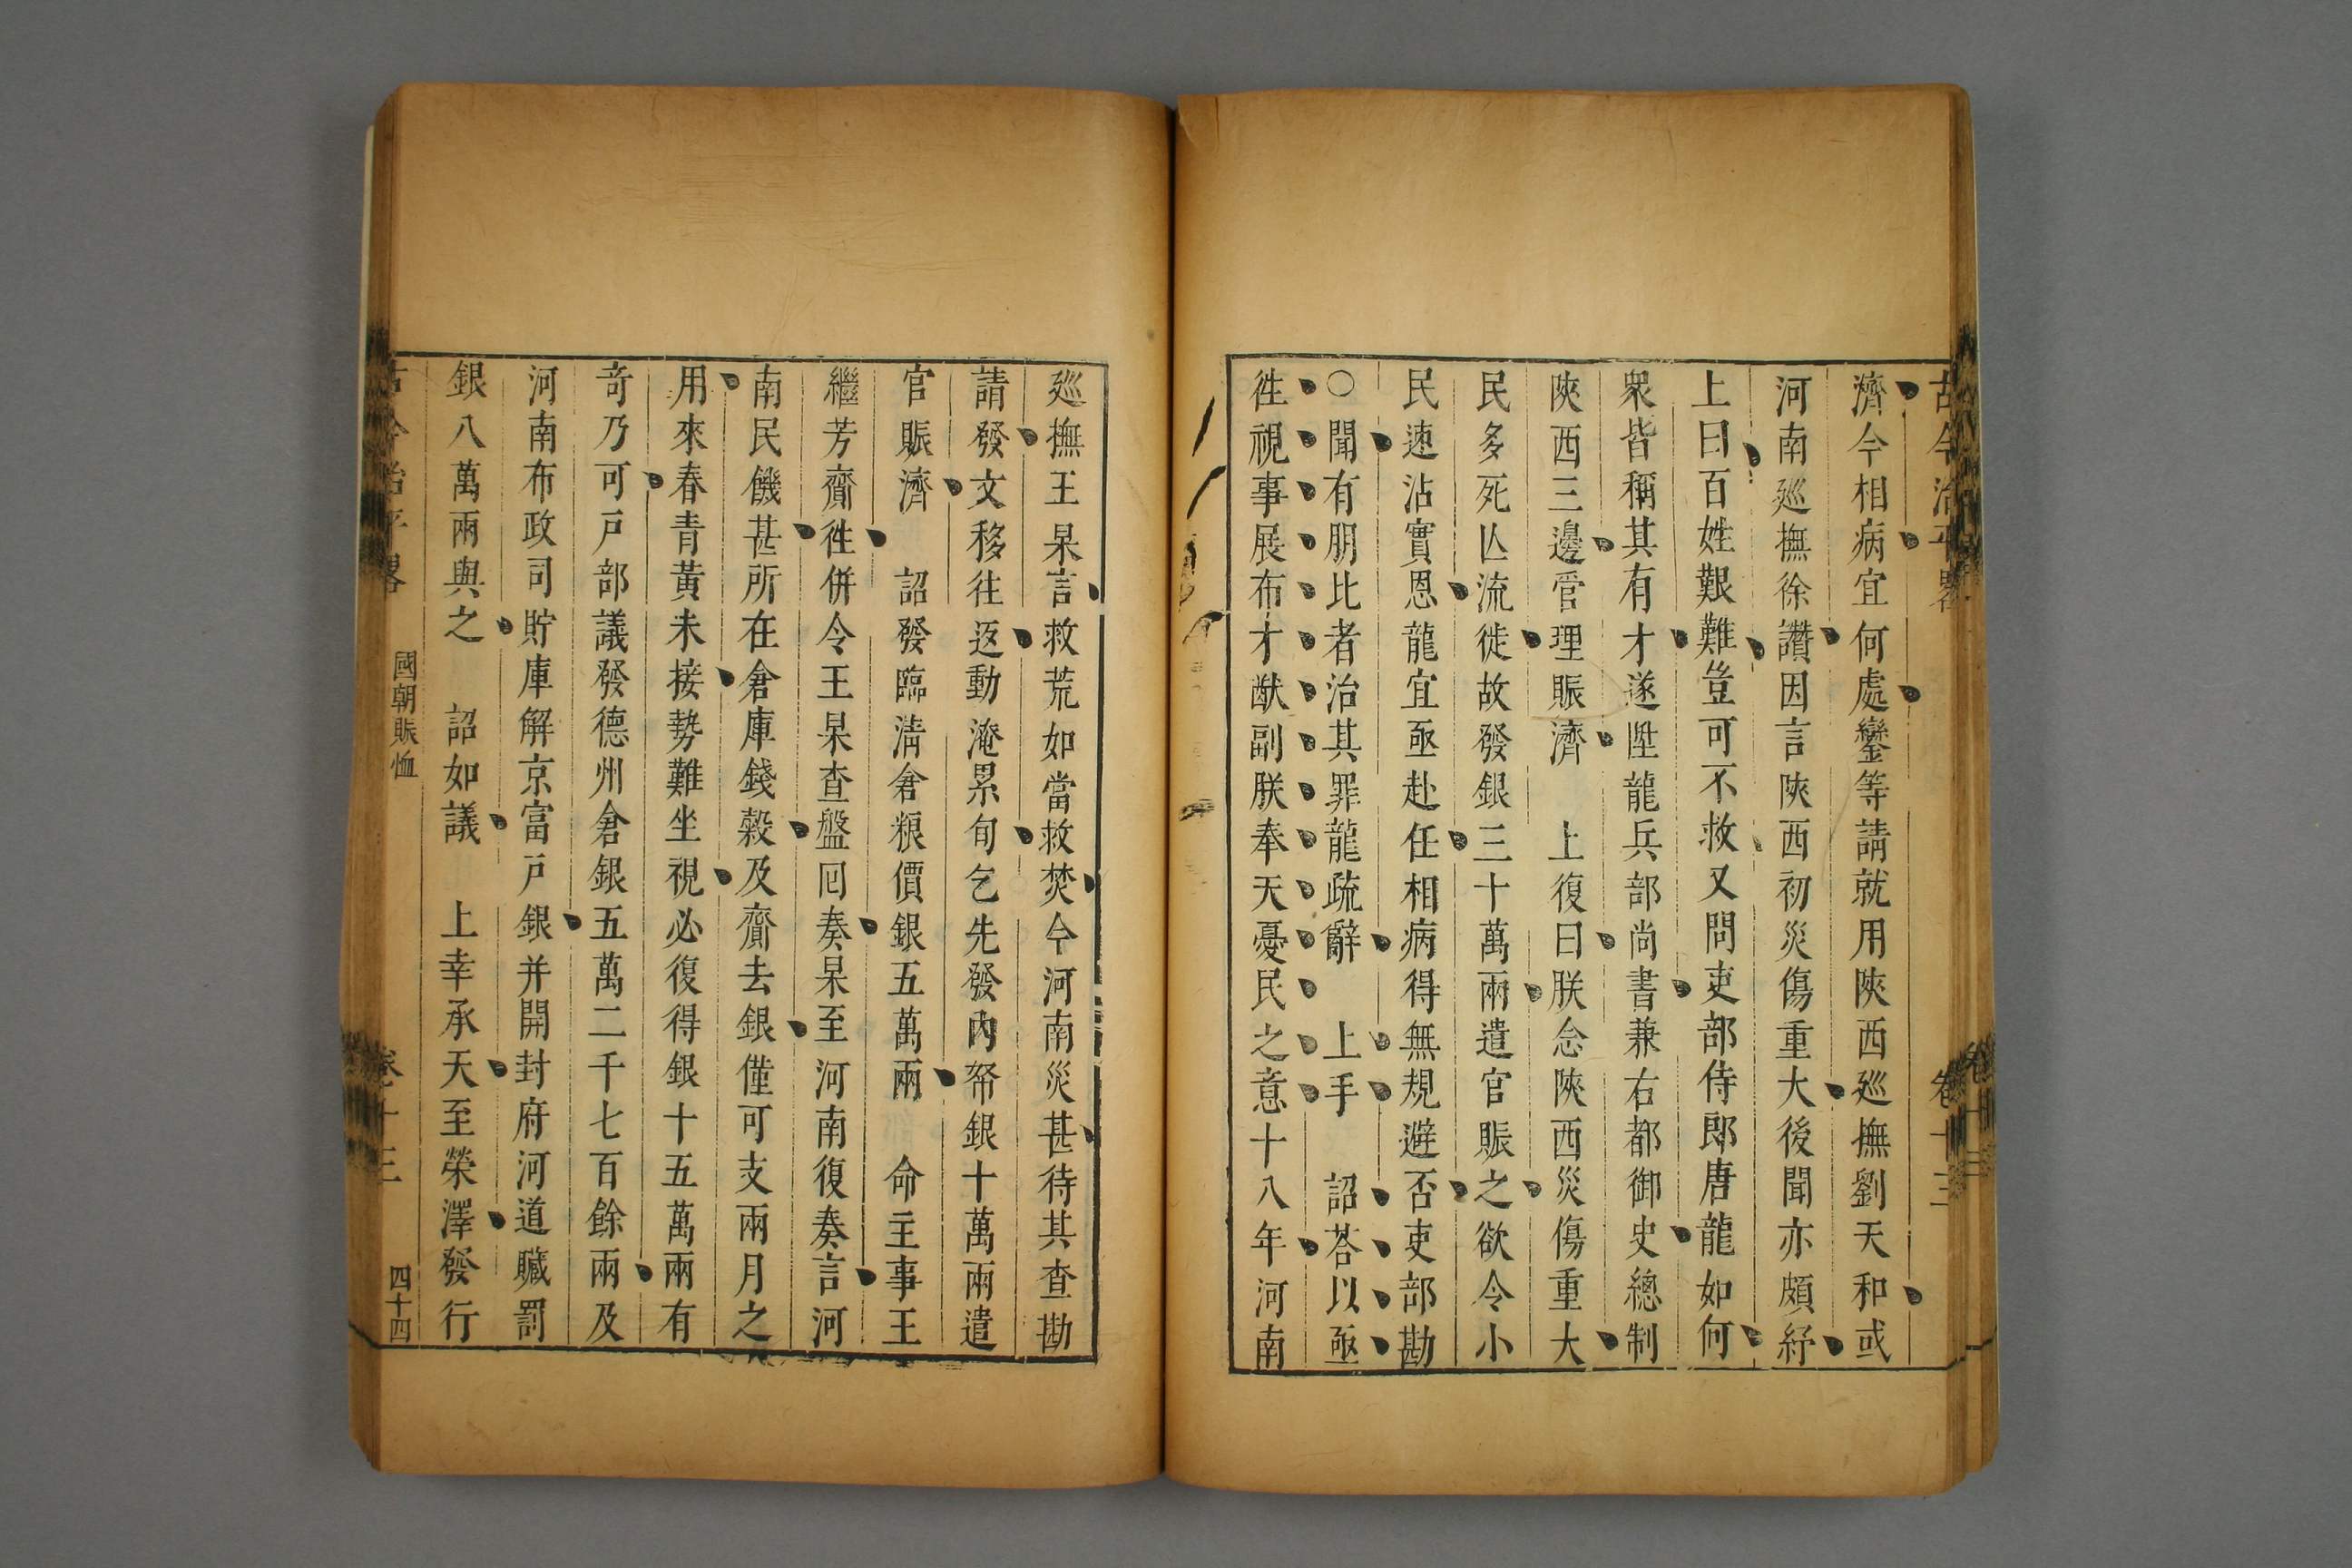 古今治平畧
卷十三
濟今相病宜何處鑾等請就用陝西廵撫劉天和或
河南廵撫徐讚因言陝西初災傷重大後聞亦頗紓
上曰百姓艱難豈可不救又問吏部侍郎唐龍如何
衆皆稱其有才遂陞龍兵部尚書兼右都御史總制
陝西三邊管理賑濟　上復曰朕念陝西災傷重大
民多死亾流徙故發銀三十萬兩遣官賑之欲令小
民速沾實恩龍宜亟赴任相病得無規避否吏部勘
○聞有朋比者治其罪龍疏辭　上手　詔荅以亟
徃視事展布才猷副朕奉天憂民之意十八年河南
廵撫王杲言救荒如當救焚今河南災甚待其查勘
請發文移往返動淹累旬乞先發內帑銀十萬兩遣
官賑濟　詔發臨淸倉粮價銀五萬兩　命主事王
繼芳齎徃併令王杲查盤囘奏杲至河南復奏言河
南民饑甚所在倉庫錢榖及齎去銀僅可支兩月之
用來春青黃未接勢難坐視必復得銀十五萬兩有
奇乃可戸部議發德州倉銀五萬二千七百餘兩及
河南布政司貯庫解京富戸銀并開封府河道贜罰
銀八萬兩與之　詔如議　上幸承天至榮澤發行
古今治平畧
國朝賑恤
卷十三
四十四